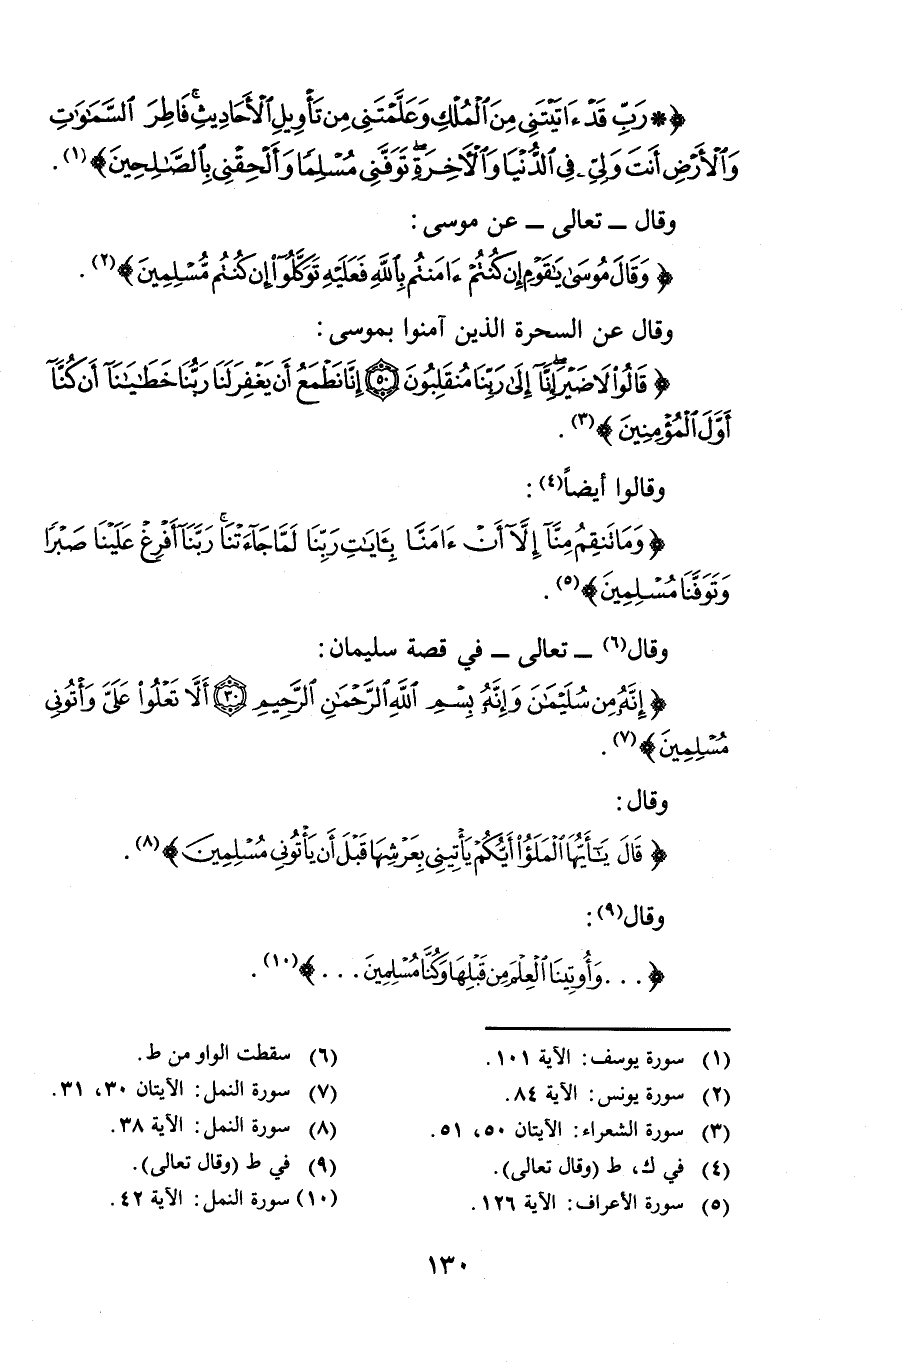 ﴿* رَبِّ قَدْ ءَاتَيْتَنِى مِنَ ٱلْمُلْكِ وَعَلَّمْتَنِى مِن تَأْوِيلِ ٱلْأَحَادِيثِ ۚ فَاطِرَ ٱلسَّمَٰوَٰتِ
وَٱلْأَرْضِ أَنتَ وَلِىِّۦ فِى ٱلدُّنْيَا وَٱلْءَاخِرَةِ ۖ تَوَفَّنِى مُسْلِمًا وَأَلْحِقْنِى بِٱلصَّٰلِحِينَ﴾(١).
وقال ــ تعالى ــ عن موسى:
﴿ وَقَالَ مُوسَىٰ يَٰقَوْمِ إِن كُنتُمْ ءَامَنتُم بِٱللَّهِ فَعَلَيْهِ تَوَكَّلُوٓا۟ إِن كُنتُم مُّسْلِمِينَ ﴾(٢).
وقال عن السحرة الذين آمنوا بموسى:
﴿ قَالُوا۟ لَا ضَيْرَ ۖ إِنَّآ إِلَىٰ رَبِّنَا مُنقَلِبُونَ ۝٥٠ إِنَّا نَطْمَعُ أَن يَغْفِرَ لَنَا رَبُّنَا خَطَٰيَٰنَآ أَن كُنَّآ
أَوَّلَ ٱلْمُؤْمِنِينَ ﴾(٣).
وقالوا أيضاً(٤):
﴿ وَمَا تَنقِمُ مِنَّآ إِلَّآ أَنْ ءَامَنَّا بِـَٔايَٰتِ رَبِّنَا لَمَّا جَآءَتْنَا ۚ رَبَّنَآ أَفْرِغْ عَلَيْنَا صَبْرًا
وَتَوَفَّنَا مُسْلِمِينَ ﴾(٥).
وقال(٦) ــ تعالى ــ في قصة سليمان:
﴿ إِنَّهُۥ مِن سُلَيْمَٰنَ وَإِنَّهُۥ بِسْمِ ٱللَّهِ ٱلرَّحْمَٰنِ ٱلرَّحِيمِ ۝٣٠ أَلَّا تَعْلُوا۟ عَلَىَّ وَأْتُونِى
مُسْلِمِينَ ﴾(٧).
وقال:
﴿ قَالَ يَٰٓأَيُّهَا ٱلْمَلَؤُا۟ أَيُّكُمْ يَأْتِينِى بِعَرْشِهَا قَبْلَ أَن يَأْتُونِى مُسْلِمِينَ ﴾(٨).
وقال(٩):
﴿ ... وَأُوتِينَا ٱلْعِلْمَ مِن قَبْلِهَا وَكُنَّا مُسْلِمِينَ ... ﴾(١٠).
(١) سورة يوسف: الآية ١٠١.
(٢) سورة يونس: الآية ٨٤.
(٣) سورة الشعراء: الآيتان ٥٠، ٥١.
(٤) في ك، ط (وقال تعالى).
(٥) سورة الأعراف: الآية ١٢٦.
(٦) سقطت الواو من ط.
(٧) سورة النمل: الآيتان ٣٠، ٣١.
(٨) سورة النمل: الآية ٣٨.
(٩) في ط (وقال تعالى).
(١٠) سورة النمل: الآية ٤٢.
١٣٠